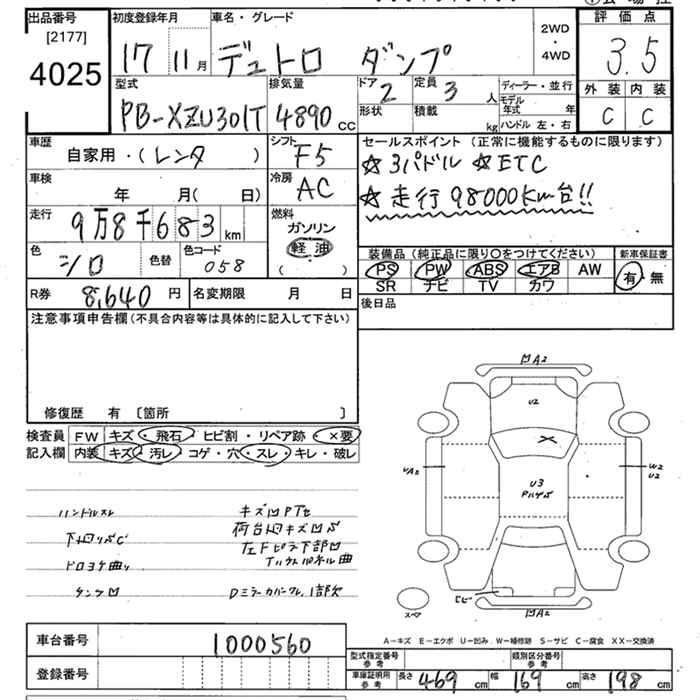 出品番号
[2177]
4025
初度登録年月
17 11月
車名・グレード
デュトロ ダンプ
2WD
・
4WD
評価点
3.5
外装 内装
C C
型式
PB-XZU301T
排気量
4890 cc
ドア
2
形状
定員
3 人
積載
kg
ディーラー・並行
モデル年式 年
ハンドル 左・右
車歴
自家用・(レンタ )
シフト
F5
車検
年 月(日)
冷房
AC
走行
9万8千683 km
燃料
ガソリン
軽油
( )
色
シロ
色替
色コード
058
R券 8,640 円
名変期限 月 日
セールスポイント(正常に機能するものに限ります)
☆3パドル ☆ETC
☆走行98000Km台!!
装備品(純正品に限り○をつけてください)
PS PW ABS エアB AW
SR ナビ TV カワ
新車保証書
有・無
後日品
注意事項申告欄(不具合内容等は具体的に記入して下さい)
修復歴 有 〔箇所 〕
検査員 FW キズ・飛石・ヒビ割・リペア跡・×要
記入欄 内装 キズ・汚レ・コゲ・穴・スレ・キレ・破レ
ハンドルスレ
キズ凹
荷台凹キズ
左Fピラ下部凹
Dミラーカバークレ,1部欠
A2
U2
U3
UA2
W2
U2
A2
スペア
A-キズ E-エクボ U-凹み W-補修跡 S-サビ C-腐食 XX-交換済
車台番号 1000560
登録番号
型式指定番号 参考
類別区分番号 参考
車庫証明用 参考 長さ 469 cm 幅 169 cm 高さ 198 cm